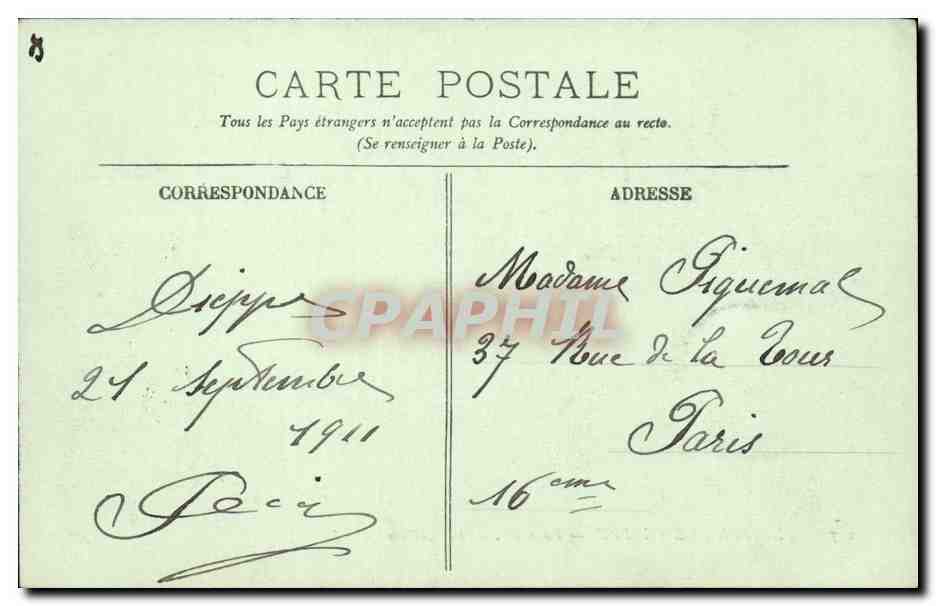 CARTE POSTALE
Tous les Pays étrangers n'acceptent pas la Correspondance au recto.
(Se renseigner à la Poste).
CORRESPONDANCE
Dieppe
21 Septembre
1911
ADRESSE
Madame Piquemal
37 Rue de la Tour
Paris
16eme
CPAPHIL